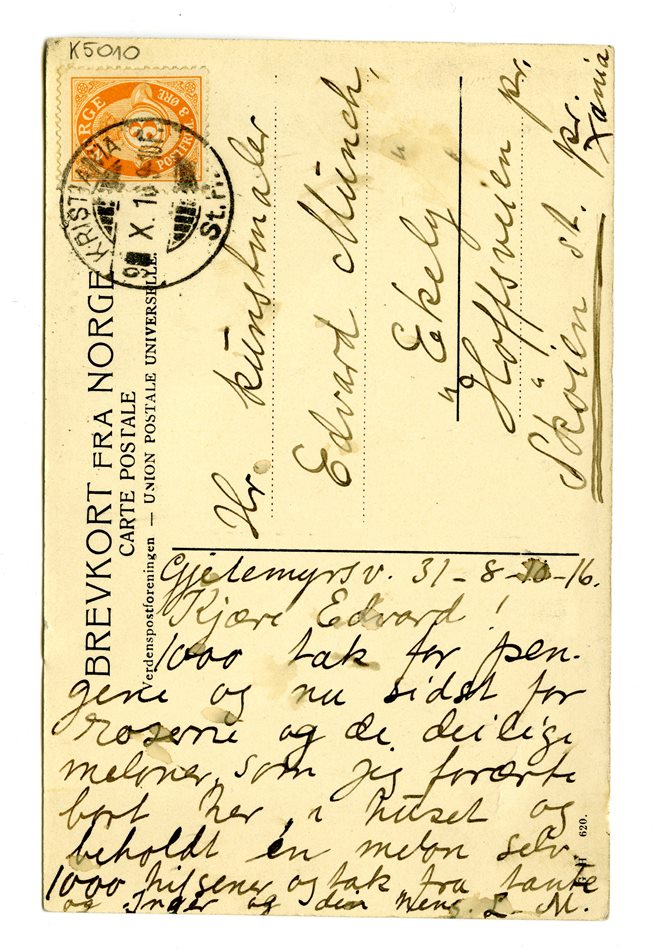 K5010
NORGE
POSTFRIM
8 ØRE
KRISTIANIA
X. 1
St. P.
BREVKORT FRA NORGE
CARTE POSTALE
Verdenspostforeningen — UNION POSTALE UNIVERSELLE.
Hr. kunstmaler
Edvard Münch,
"Ekely"
Hoffsveien pr.
Skøien st. pr.
Xania
Gjetemyrsv. 31-8-10-16.
Kjære Edvard!
1000 tak for pen-
gene og nu sidst for
roserne og de deilige
meloner, som jeg forærte
bort her i huset og
beholdt en melon selv.
1000 hilsener og tak fra tante
og Inger og din L. M.
620.